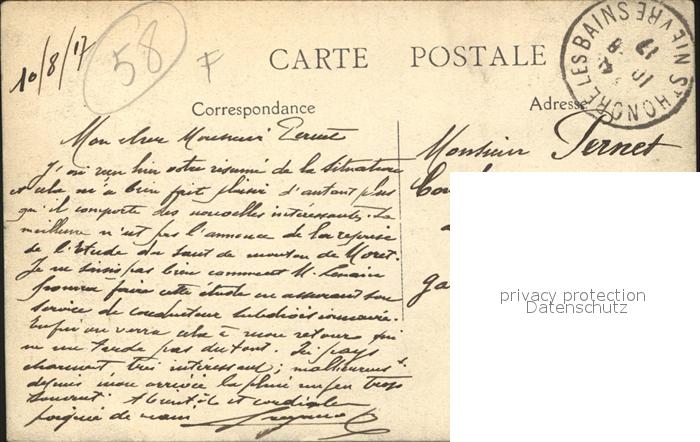 10/8/17
58
F
CARTE POSTALE
ST HONORE LES BAINS NIEVRE
10
8
17
Correspondance
Adresse
Mon cher Monsieur Pernet
J'ai reçu hier votre résumé de la situation
et cela m'a bien fait plaisir d'autant plus
qu'il comporte des nouvelles intéressantes. La
meilleure n'est pas l'annonce de la reprise
de l'Etude du saut de mouton de Moret.
Je ne saisis pas bien comment M.
pourra faire cette étude en assurant son
service de conducteur subdivisionnaire.
Enfin on verra cela à mon retour qui
ne me tarde pas du tout. Ici pays
charmant très intéressant; malheureusᵗ
depuis mon arrivée la pluie un peu trop
souvent. A bientôt et cordiale
poignée de main
Monsieur Pernet
privacy protection
Datenschutz